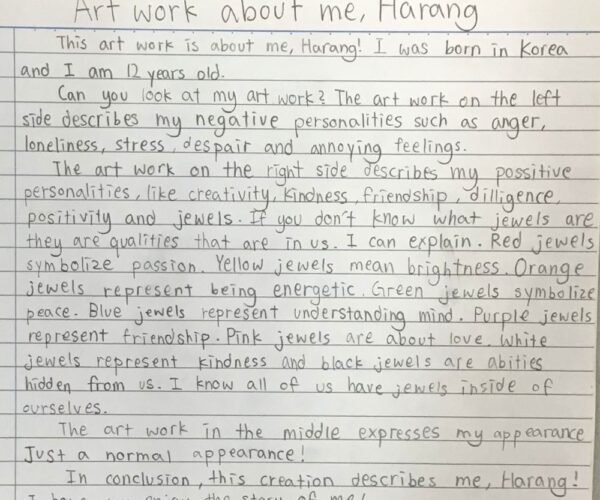 Art work about me, Harang
This art work is about me, Harang! I was born in Korea
and I am 12 years old.
Can you look at my art work? The art work on the left
side describes my negative personalities such as anger,
loneliness, stress, despair and annoying feelings.
The art work on the right side describes my possitive
personalities, like creativity, kindness, friendship, dilligence,
positivity and jewels. If you don't know what jewels are
they are qualities that are in us. I can explain. Red jewels
symbolize passion. Yellow jewels mean brightness. Orange
jewels represent being energetic. Green jewels symbolize
peace. Blue jewels represent understanding mind. Purple jewels
represent friendship. Pink jewels are about love. White
jewels represent kindness and black jewels are abities
hidden from us. I know all of us have jewels inside of
ourselves.
The art work in the middle expresses my appearance
Just a normal appearance!
In conclusion, this creation describes me, Harang!
I hope you enjoy the story of me!